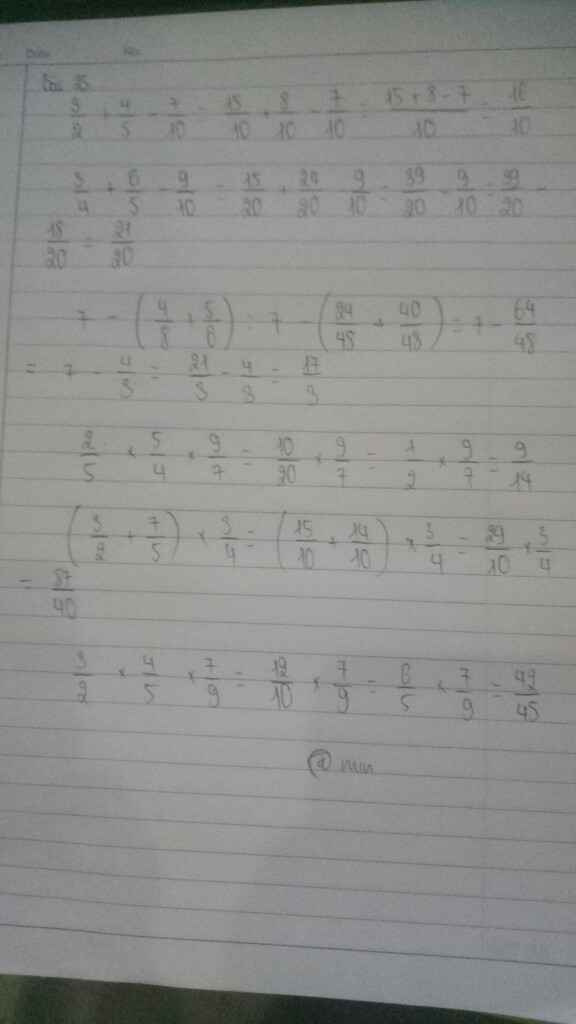 Bài 35
3/2 + 4/5 - 7/10 = 15/10 + 8/10 - 7/10 = 15 + 8 - 7/10 = 16/10
3/4 + 6/5 - 9/10 = 15/20 + 24/20 - 9/10 = 39/20 - 9/10 = 39/20 -
18/20 = 21/20
7 - (4/8 + 5/6) = 7 - (24/48 + 40/48) = 7 - 64/48
= 7 - 4/3 = 21/3 - 4/3 = 17/3
2/5 × 5/4 × 9/7 = 10/20 × 9/7 = 1/2 × 9/7 = 9/14
(3/2 + 7/5) × 3/4 = (15/10 + 14/10) × 3/4 = 29/10 × 3/4
= 87/40
3/2 × 4/5 × 7/9 = 12/10 × 7/9 = 6/5 × 7/9 = 42/45